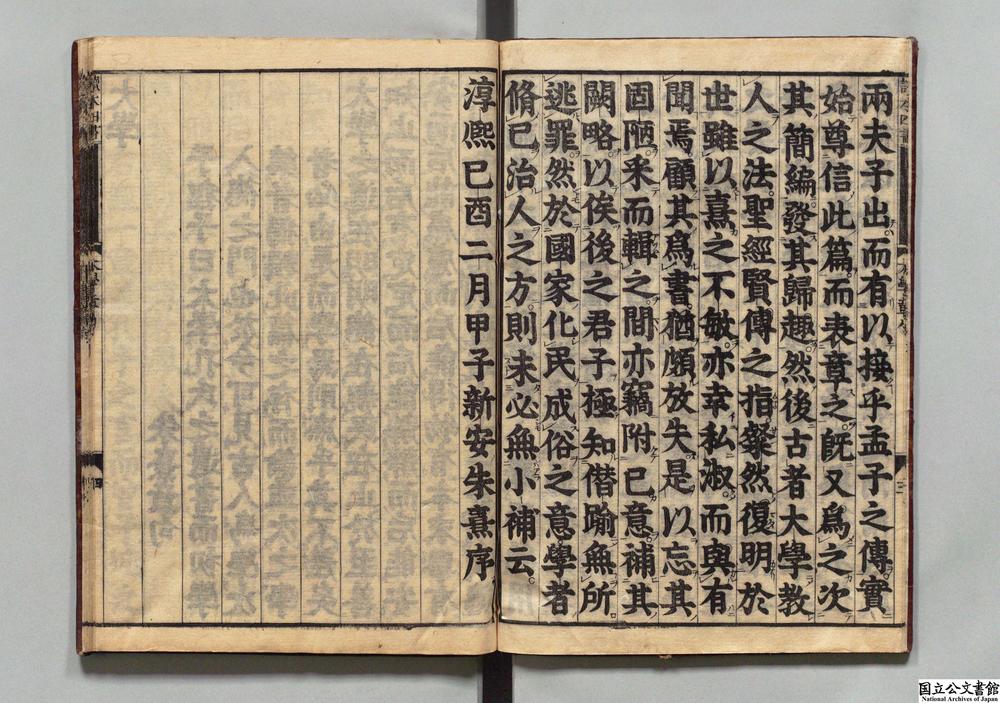 兩夫子出而有以接乎孟子之傳實
始尊信此篇而表章之旣又爲之次
其簡編發其歸趣然後古者大學教
人之法聖經賢傳之指粲然復明於
世雖以熹之不敏亦幸私淑而與有
聞焉顧其爲書猶頗放失是以忘其
固陋釆而輯之間亦竊附已意補其
闕略以俟後之君子極知僭踰無所
逃罪然於國家化民成俗之意學者
脩已治人之方則未必無小補云
淳熈已酉二月甲子新安朱熹序
国立公文書館
National Archives of Japan